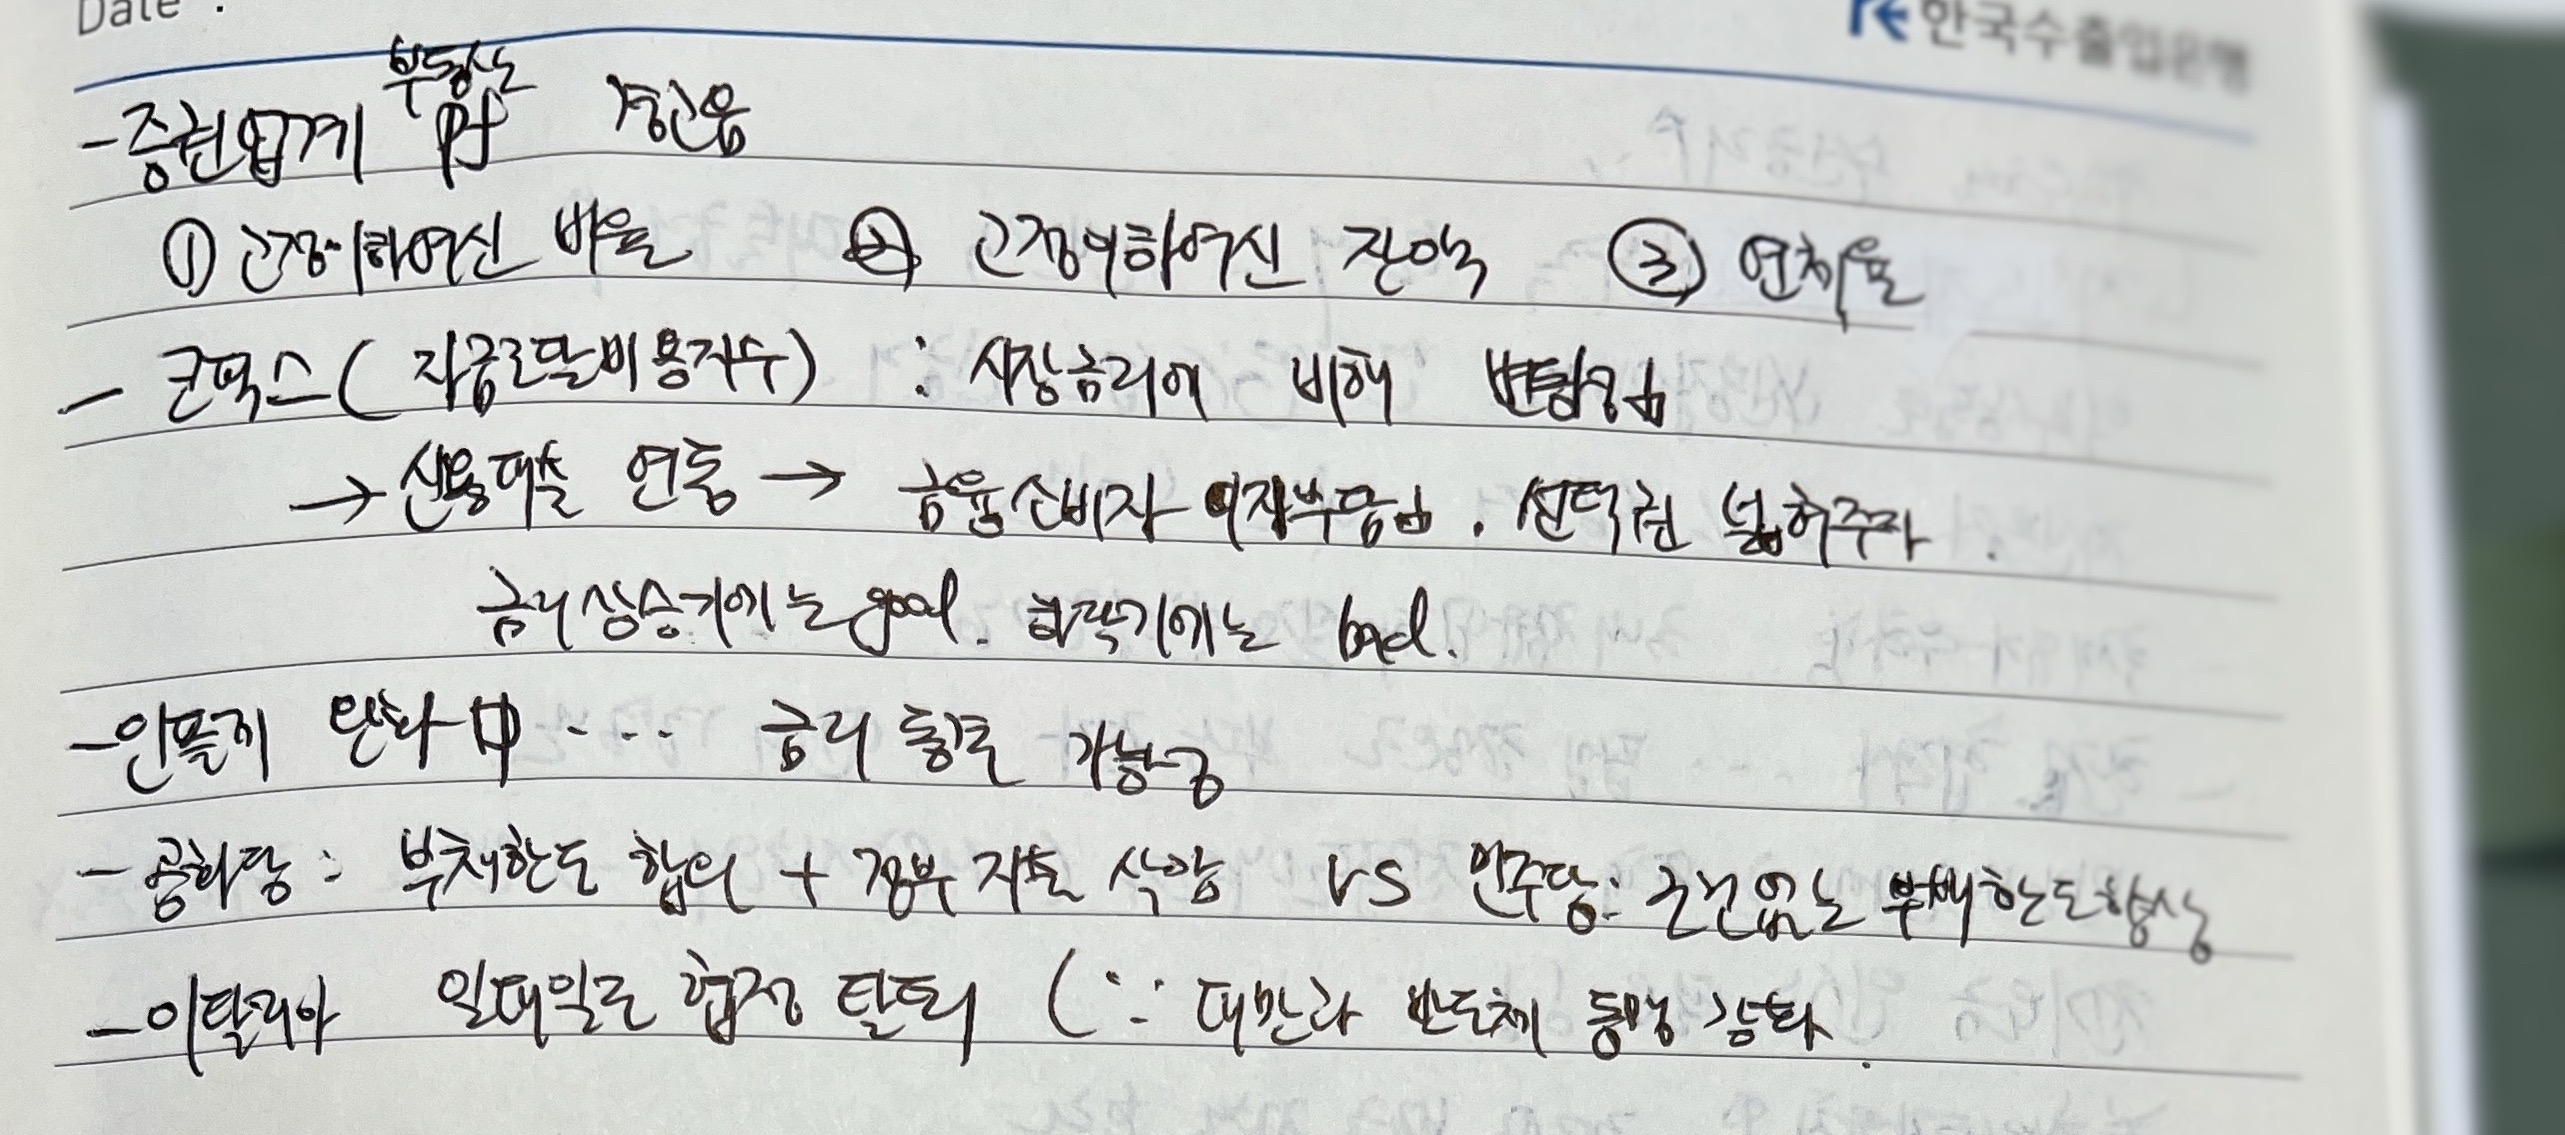 Date :
한국수출입은행
부동산
- 증권업계 PF 경고음
① 고정이하여신 비율 ② 고정이하여신 잔액 ③ 연체율
- 코픽스 ( 자금조달비용지수 ) : 시장금리에 비해 변동
→ 신용대출 연동 → 금융소비자 이자부담 . 선택권 넓혀주자 .
금리상승기에는 good. 하락기에는 bad.
- 인플레 완화 中 ... 금리 동결 가능
- 공화당 : 부채한도 합의 + 정부 지출 삭감 vs 민주당 : 조건없는 부채한도향상
- 이탈리아 일대일로 협정 탈퇴 ( ∵ 대만과 반도체 동맹 강화